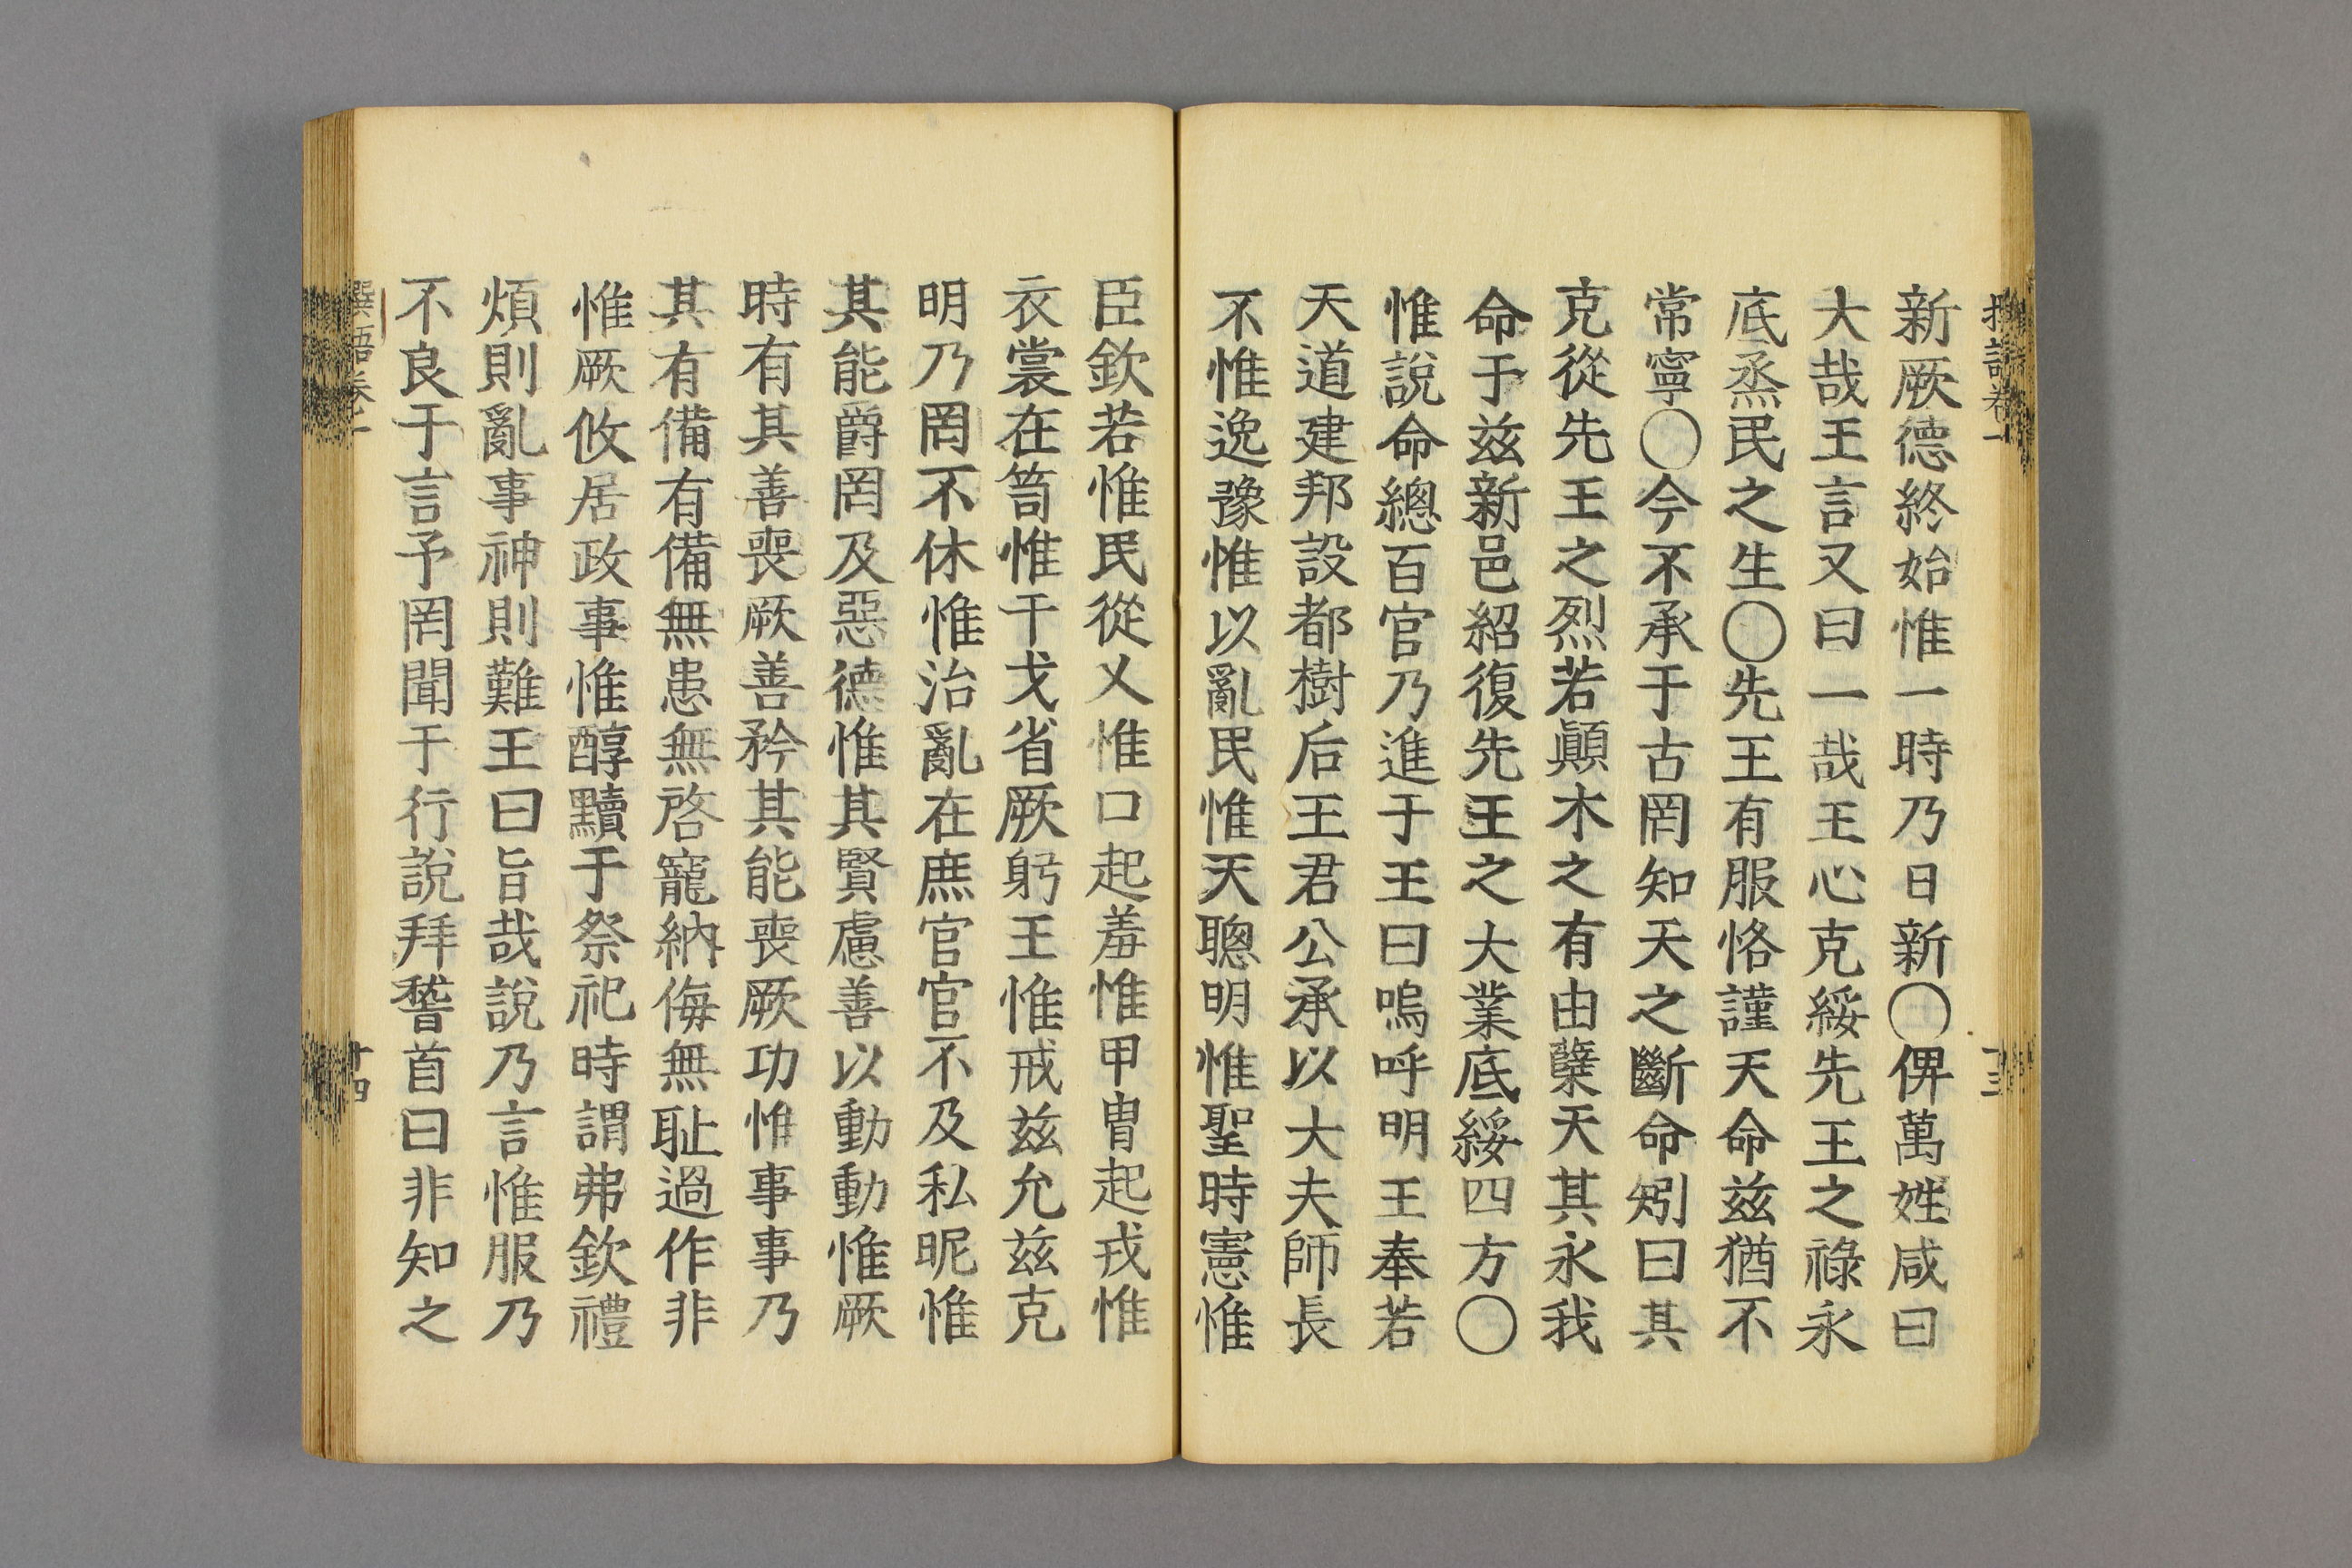 新厥德終始惟一時乃日新〇俾萬姓咸曰
大哉王言又曰一哉王心克綏先王之祿永
底烝民之生〇先王有服恪謹天命茲猶不
常寧〇今不承于古罔知天之斷命矧曰其
克從先王之烈若顚木之有由蘖天其永我
命于茲新邑紹復先王之大業底綏四方〇
惟說命總百官乃進于王曰嗚呼明王奉若
天道建邦設都樹后王君公承以大夫師長
不惟逸豫惟以亂民惟天聰明惟聖時憲惟
臣欽若惟民從乂惟口起羞惟甲胄起戎惟
衣裳在笥惟干戈省厥躬王惟戒茲允茲克
明乃罔不休惟治亂在庶官官不及私昵惟
其能爵罔及惡德惟其賢慮善以動動惟厥
時有其善喪厥善矜其能喪厥功惟事事乃
其有備有備無患無啓寵納侮無恥過作非
惟厥攸居政事惟醇黷于祭祀時謂弗欽禮
煩則亂事神則難王曰旨哉說乃言惟服乃
不良于言予罔聞于行說拜稽首曰非知之
卄四